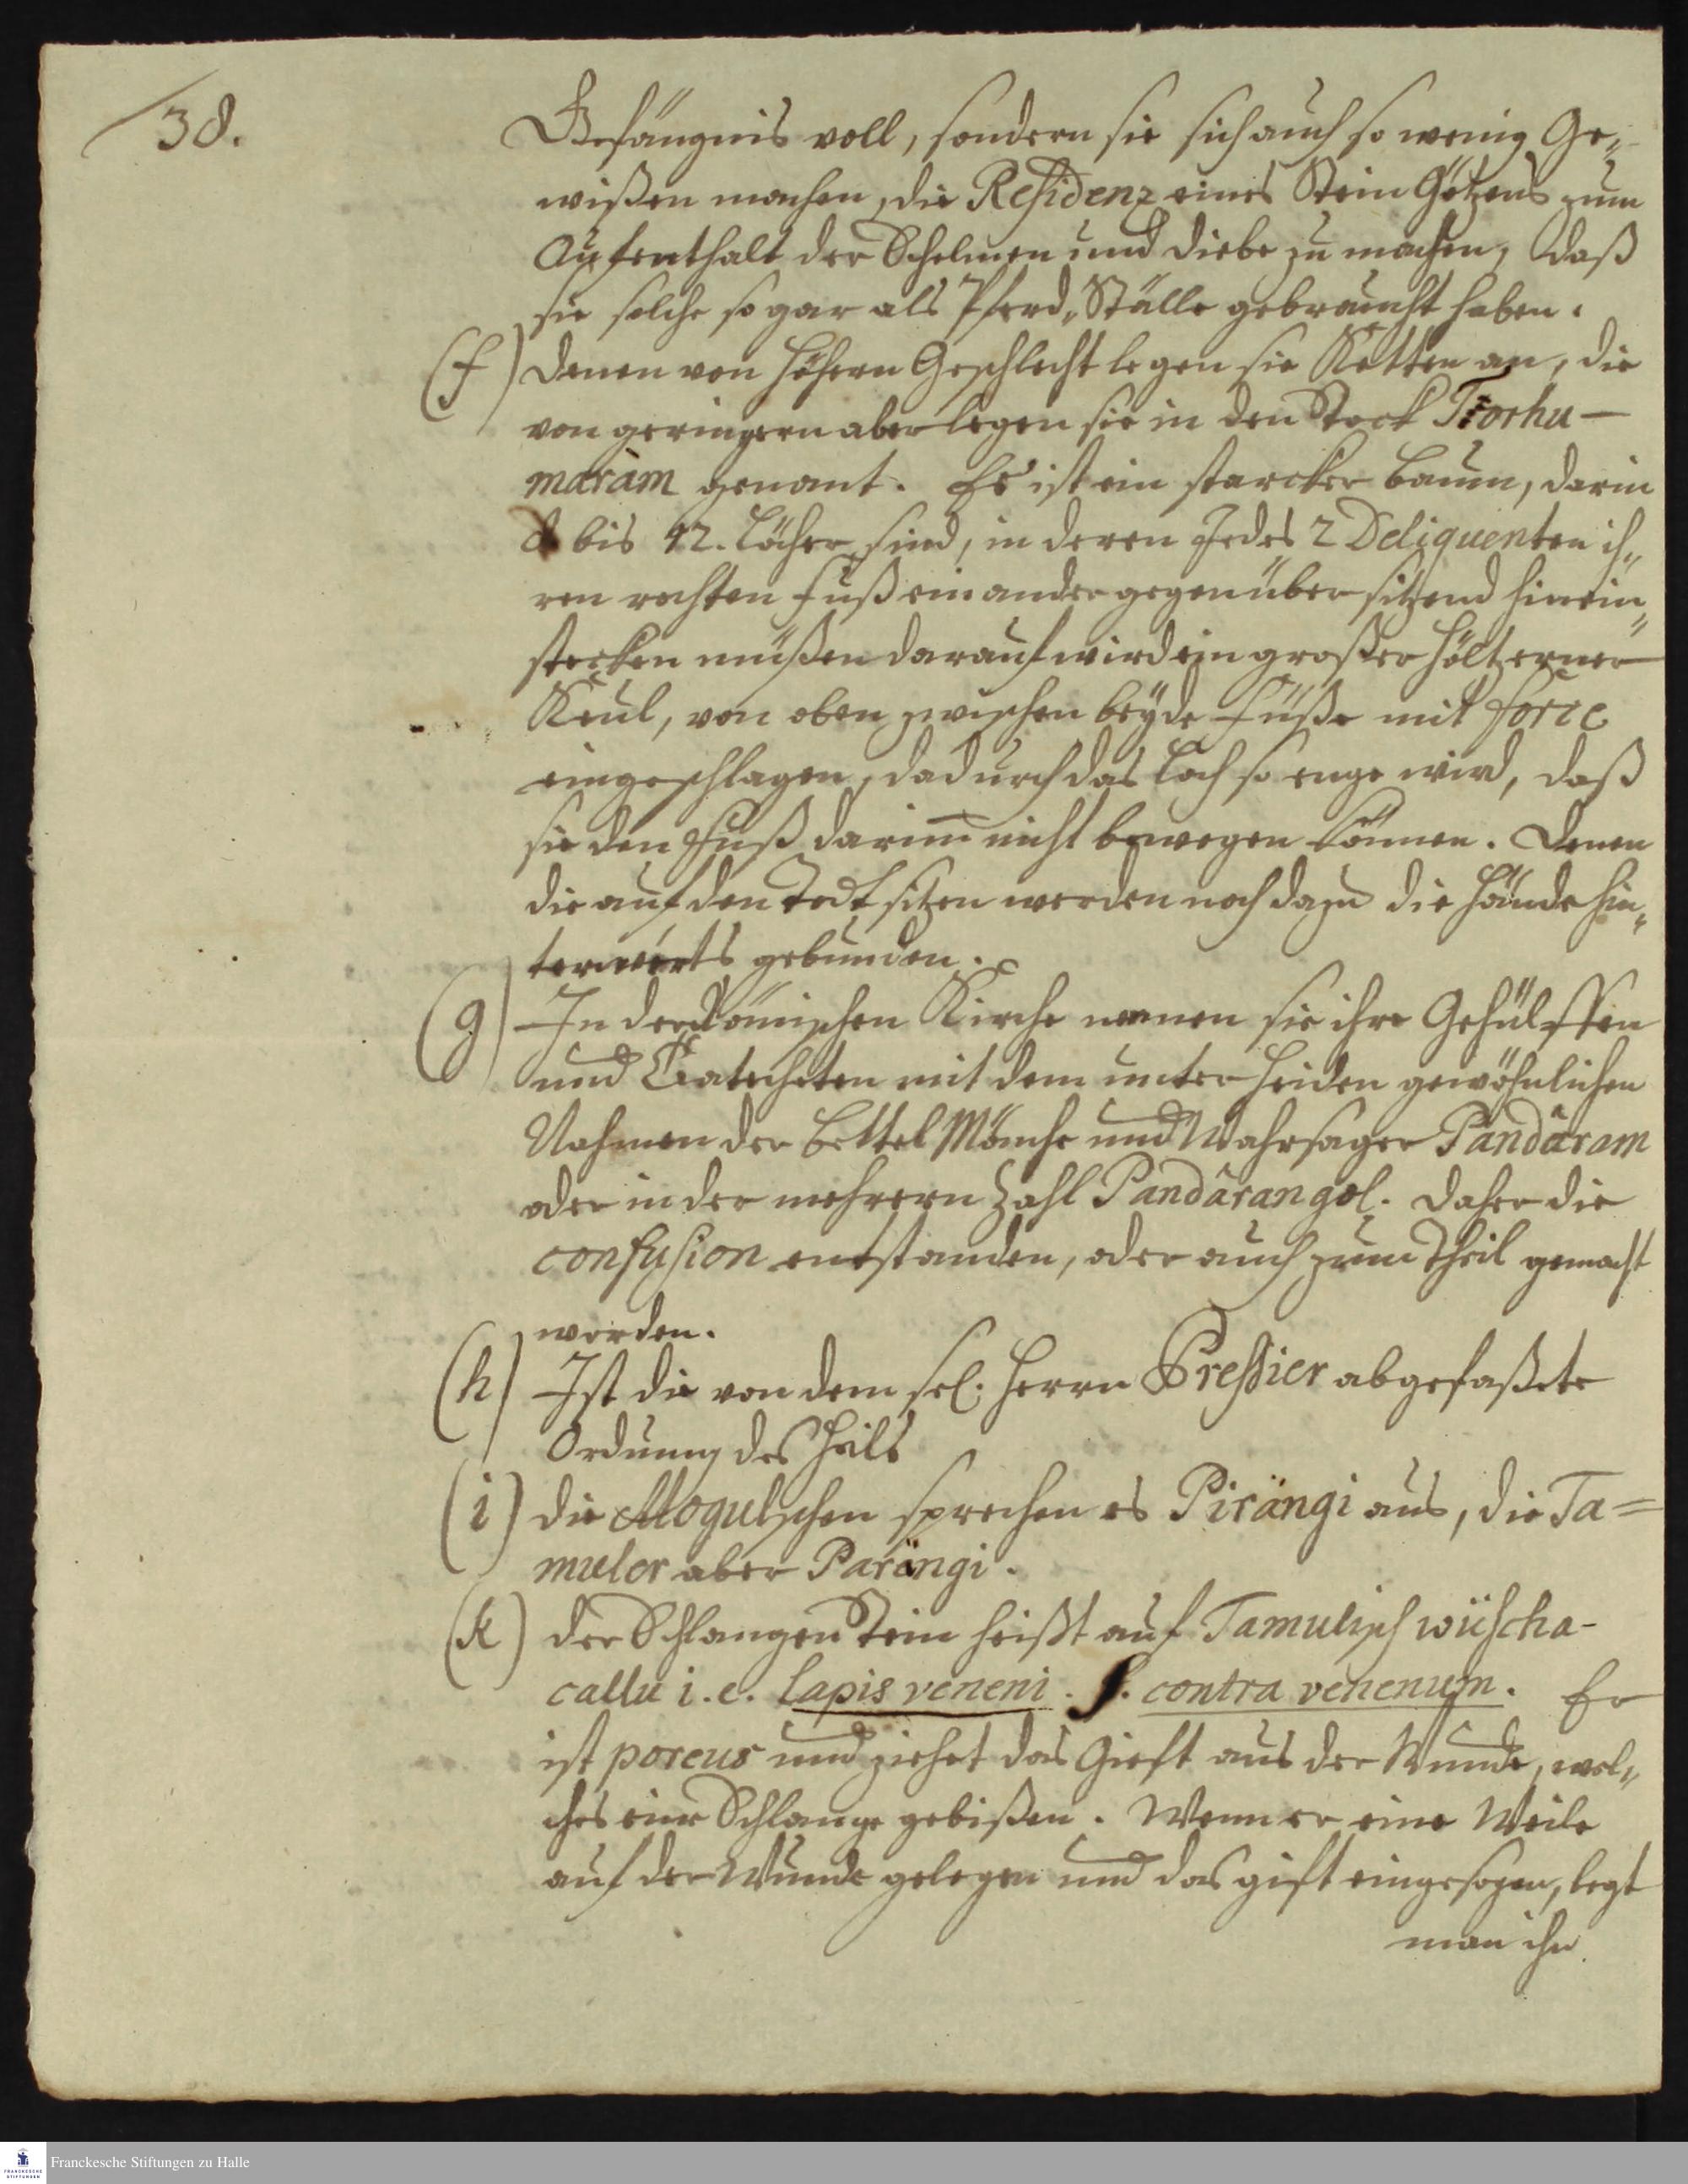 38.
Gefängnis voll, sondern sie sich auch so wenig Ge„
wißen machen, die Residenz eines Stein Götzens zum
Aufenthalt der Schelmen und Diebe zu machen, daß
sie solche so gar als Pferd„Ställe gebraucht haben.
(f) Denen von höhern Geschlecht legen sie Ketten an, die
von geringern aber legen sie in den Stock Trorhu-
maràm genant. Es ist ein starcker Baum, darin
bis 12. Löcher sind, in deren Jedes 2 Deliquenten ih„
ren rechten Fuß einander gegenüber sitzend hinein„
stecken müßen darauf wird ein großer höltzerner
Keul, von oben zwischen beyde Füße mit force
eingeschlagen, dadurch das Loch so enge wird, daß
sie den Fuß darinn nicht bewegen können. Denen
die auf den Todt sitzen werden noch dazu die Hände hin„
terwerts gebunden.
(g) In der Römischen Kirche nennen sie ihre Gehülffen
und Catecheten mit dem unter Heiden gewöhnlichen
Nahmen der Bettel Mönche und Wahrsager Pandâram
oder in der mehrern Zahl Pandârangol. Daher die
confusion entstanden, oder auch zum Theil gemacht
worden.
(h) Ist die von dem sel. Herrn Pressier abgefaßete
Ordnung des Heils
(i) die Mogulschen sprechen es Pirängi aus, die Ta=
muler aber Parängi.
(k) der Schlangen Stein heißt auf Tamulisch wüscha-
callu i.e. lapis veneni. s. contra venenum. Er
ist poreus und ziehet das Gieft aus der Wunde, wel„
ches eine Schlange gebißen. Wenn er eine Weile
auf der Wunde gelegen und das gift eingesogen, legt
man ihn
Franckesche Stiftungen zu Halle